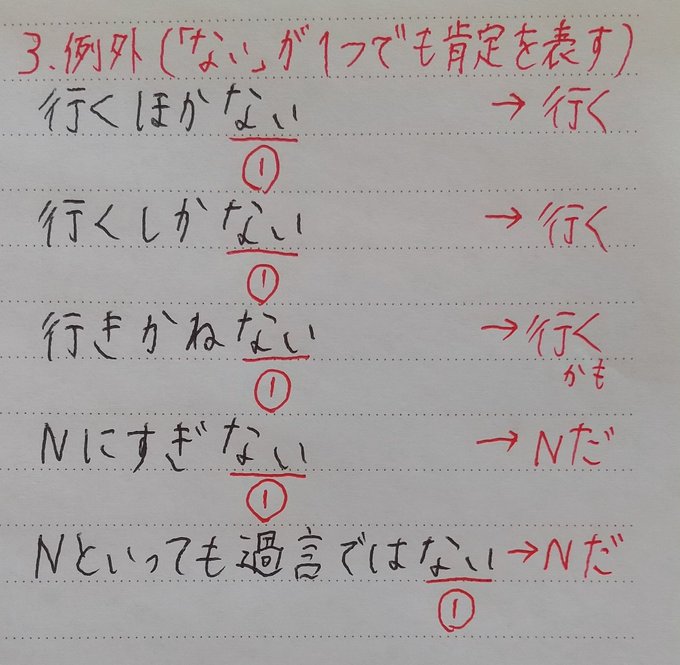 3.例外(「ない」が1つでも肯定を表す)
行くほかない → 行く
①
行くしかない → 行く
①
行きかねない → 行く
かも
①
Nにすぎない → Nだ
①
Nといっても過言ではない → Nだ
①